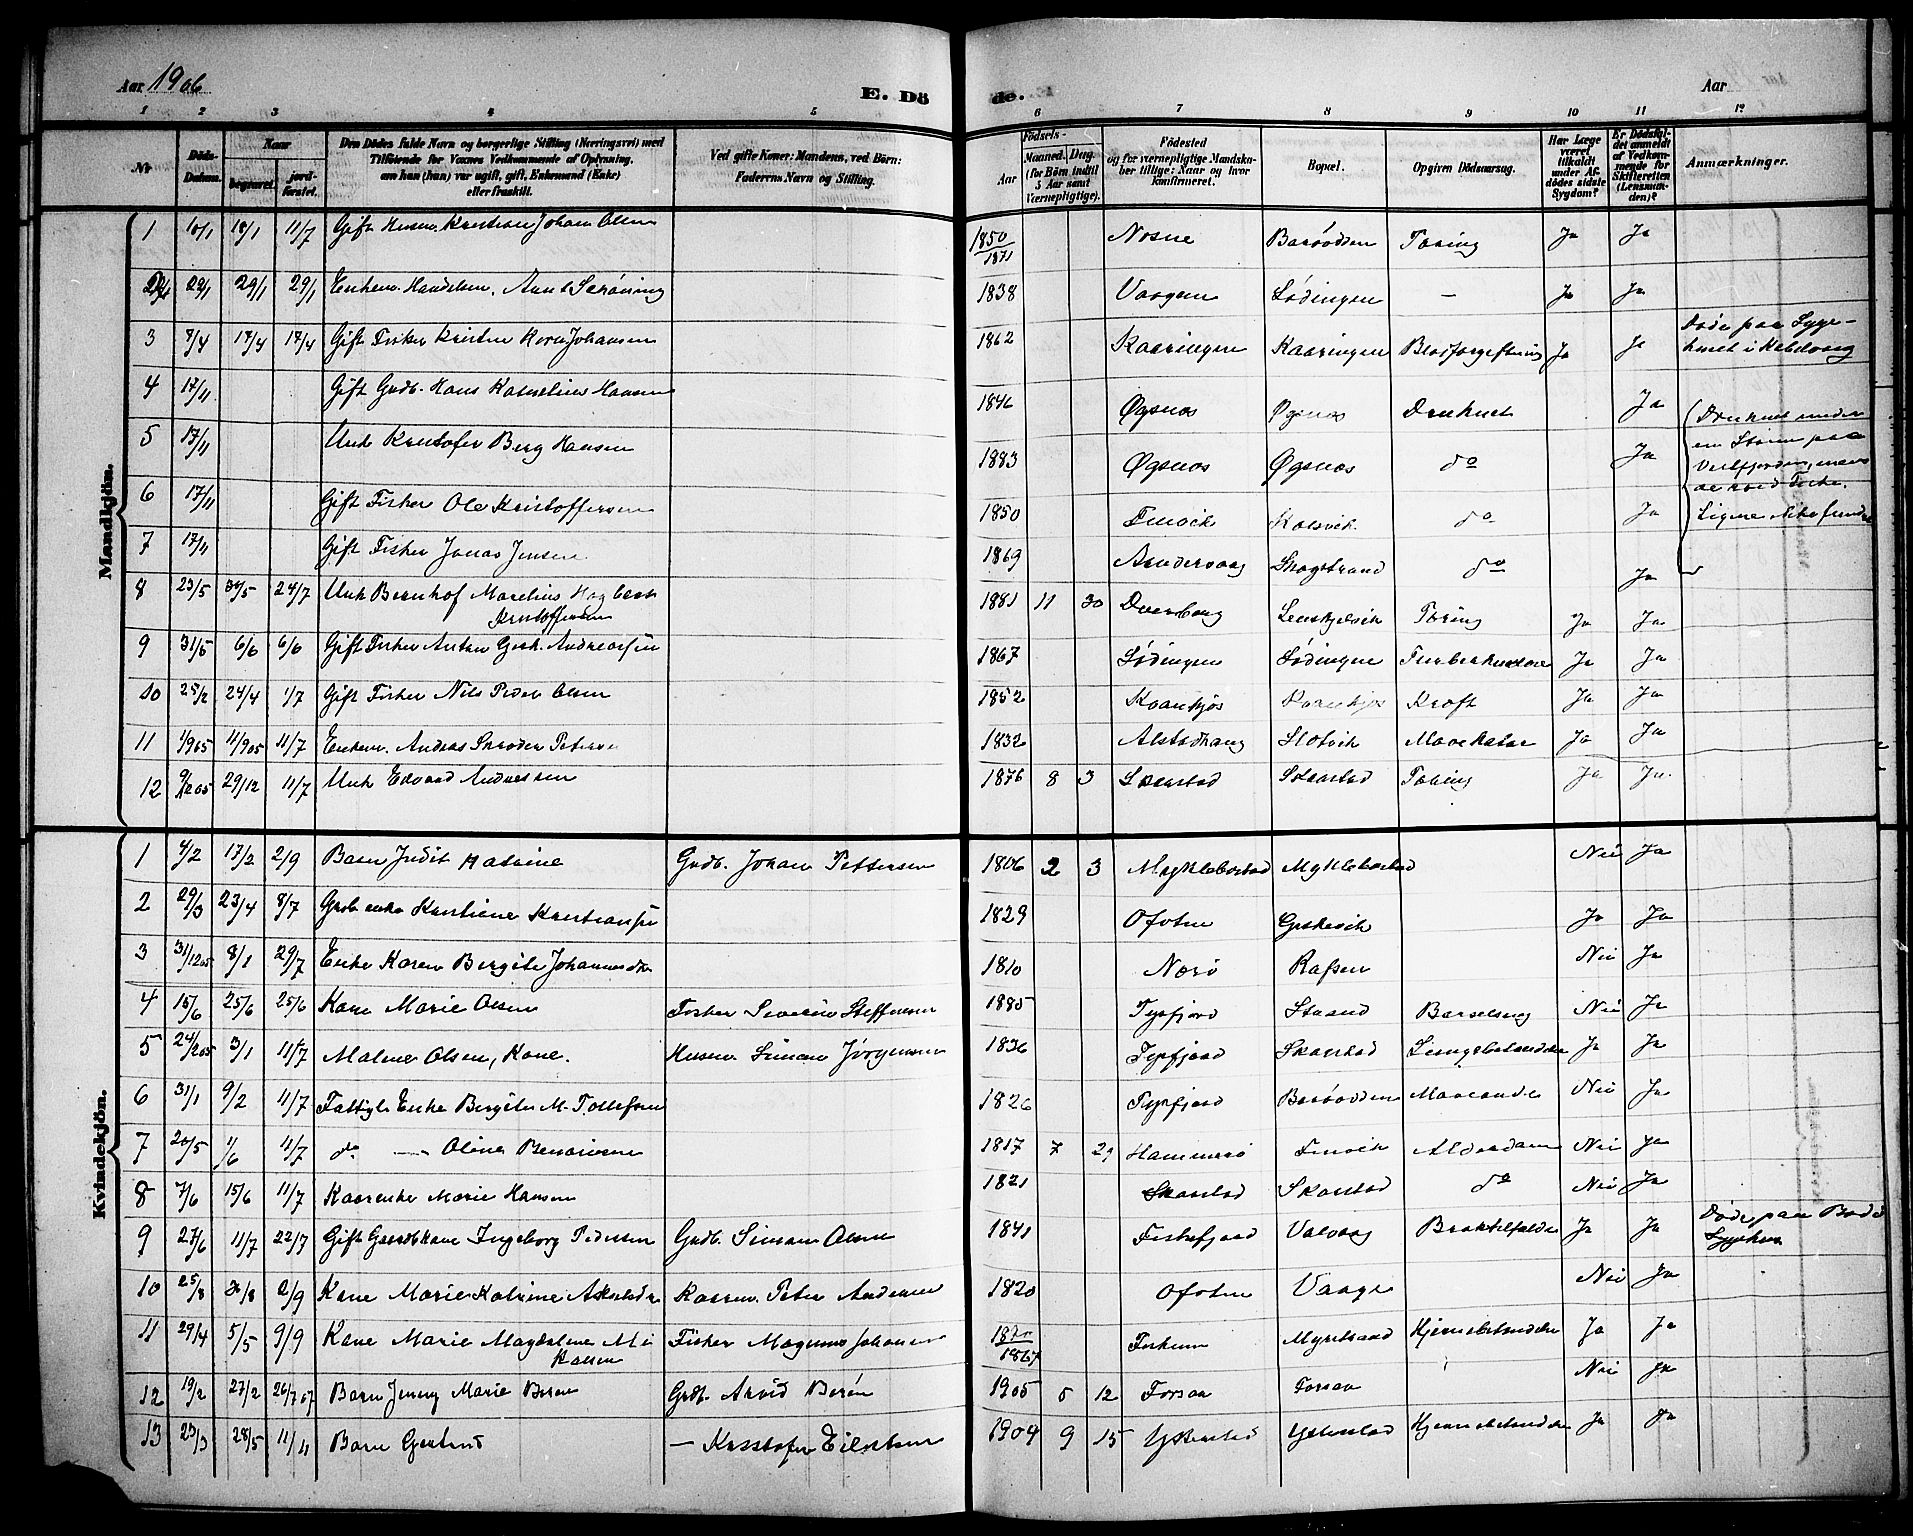 Aar 1906 E. Dö de. Aar
1 2 3 4 5 6 7 8 9 10 11 12
Nr. Döds-Datum. Naar begravet. jordfæstet. Den Dödes fulde Navn og borgerlige Stilling (Næringsvei) med Tilföiende for Voxnes Vedkommende af Oplysning, om han (hun) var ugift, gift, Enkemand (Enke) eller fraskilt. Ved gifte Koner: Mandens, ved Börn: Faderens Navn og Stilling. Födsels- Aar Maaned. Dag. (for Börn indtil 5 Aar samt Værnepligtige). Födested og for værnepligtige Mandskaber tillige: Naar og hvor konfirmeret. Bopæl. Opgiven Dödsaarsag. Har Læge været tilkaldt under Afdödes sidste Sygdom? Er Dödsfaldet anmeldt af Vedkommende for Skifteretten (Lensmanden)? Anmærkninger.
Mandkjön.
1 10/1 18/1 11/7 Gift Husm. Kristian Johan Olsen 1850/1871 Nesne Barøodden Tæring Ja Ja
2 22/1 29/1 29/1 Enkem. Handelsm. Schöning 1838 Vaagen Lødingen — Ja Ja
3 7/4 17/4 17/4 Gift Fisker Kristen Horn Johansen 1862 Kaaringen Kaaringen Blodforgiftning Ja Ja Døde paa Sygehuset i Kabelvaag
4 17/11 Gift Grdb. Hans Kornelius Hansen 1846 Øgsnæs Øgsnæs Druknet Ja
5 17/11 Unk Kristofer Berg Hansen 1883 Øgsnæs Øgsnæs do Ja
6 17/11 Gift Fisker Ole Kristoffersen 1850 Finvik Kalsvik do Ja
7 17/11 Gift Fisker Jonas Jensen 1869 Skogstrand do Ja
Druknet under en Storm paa Vestfjorden, mens de roed Fiske. Ligene ikke fundne
8 23/5 30/5 24/7 Unk Bernhof Marelius Hagbart Kristoffersen 1881 11 30 Dverberg Tæring Ja Ja
9 31/5 6/6 6/6 Gift Fisker Anton Andreassen 1867 Lødingen Lødingen Tuberkulose Ja Ja
10 25/2 24/4 1/7 Gift Fisker Nils Peder Olsen 1852 Kræft Ja Ja
11 1/9 05 11/9 05 11/7 Enkem. Andreas Schrøder Petersen 1832 Alstadhaug Slotvik Mavekatar Ja Ja
12 9/12 05 29/12 11/7 Unk Edvard Andreassen 1876 8 3 Skarstad Skarstad Tæring Ja Ja
Kvindekjön.
1 4/2 17/2 2/9 Barn Judit Katrine Grdb. Johan Pettersen 1806 2 3 Myklebostad Myklebostad Nei Ja
2 29/3 23/4 8/7 Grdb enke Kristine Kristiansen 1829 Ofoten Ja Ja
3 31/12 05 8/1 29/7 Enke Karen Bergite Johannesdtr 1810 Nærø Rafsen Nei Ja
4 15/6 25/6 25/6 Kone Marie Olsen Fisker Severin Steffensen 1885 Tysfjord Strand Barselseng Nei Ja
5 24/12 05 3/1 11/7 Malene Olsen, Kone. Husm. Simon Jørgensen 1836 Tysfjord Skarstad Lungebetændelse Ja Ja
6 31/1 9/2 11/7 Fattigl. Enke Bergite M. Tollefsen 1826 Tysfjord Barøodden Mavesaar Nei Ja
7 20/5 1/6 11/7 do — Oline Benoriosen 1817 7 29 Hammerø Finvik Alderdom Nei Ja
8 7/6 15/6 11/7 Kaarenke Marie Hansen 1821 Skarstad Skarstad do Nei Ja
9 27/6 11/7 22/7 Gift Gaardbkone Ingeborg Pedersen Grdb. Simon Olsen 1841 Fiskefjord Valvaag Ja Ja Døde paa Bodø Sygehus
10 25/8 30/8 2/9 Kone Marie Katrine Kaarm. Peter Andersen 1820 Ofoten Vaage Nei Ja
11 29/4 5/5 9/9 Kone Marie Magdalene Mikalsen Fisker Magnus Johansen 1871/1867 Myrstrand Hjernebetændelse Ja Ja
12 19/2 27/2 26/7 07 Barn Jenny Marie Berøn Grdb. Arvid Berøn 1905 5 12 Forsaa Forsaa Nei Ja
13 23/3 28/5 11/11 Barn Gertrud — Kristofer Eilertsen 1904 9 15 Hjernebetændelse Ja Ja